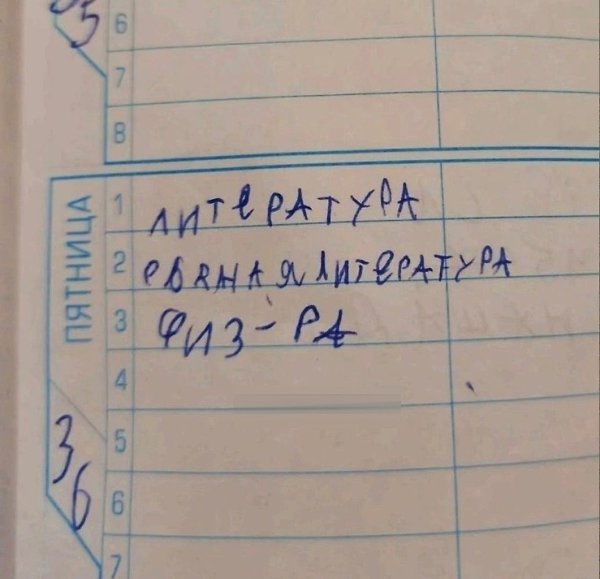 5
6
7
8
ПЯТНИЦА
1 ЛИТЕРАТУРА
2 РВЯНАЯ ЛИТЕРАТУРА
3 ФИЗ-РА
4
5
6
7
36